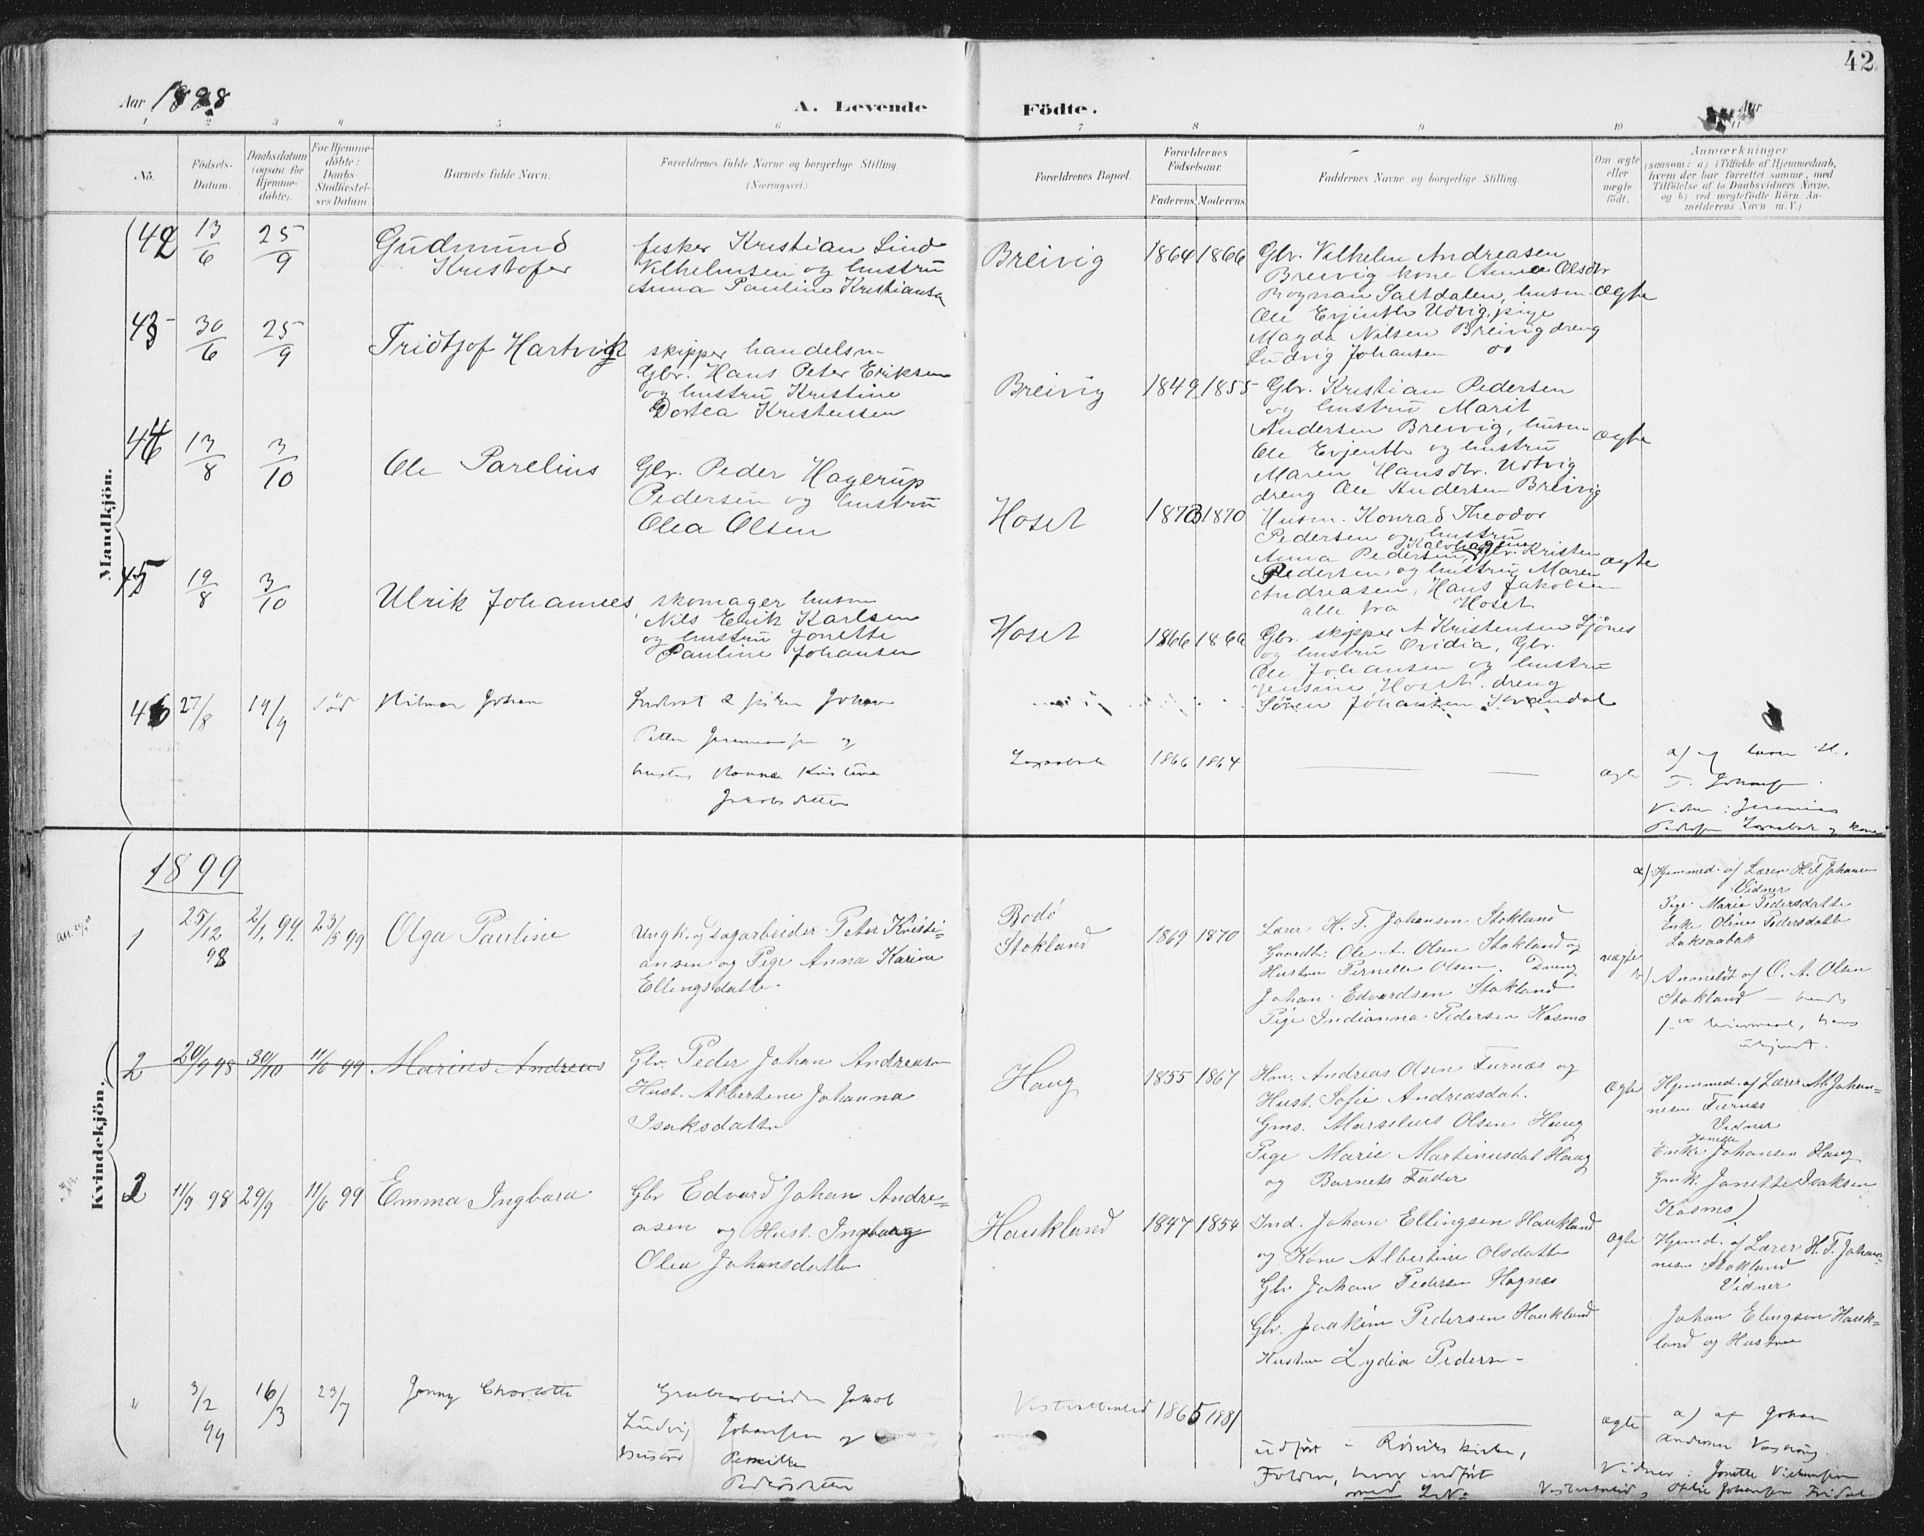 42
Aar 1898
A. Levende
Födte.
Aar
1 2 3 4 5 6 7 8 9 10 11
No.
Födsels-
Datum.
Daabsdatum
(ogsaa for
Hjemme-
döbte).
For Hjemme-
döbte:
Daabs-
Stadfæstel-
ses Datum.
Barnets fulde Navn.
Forældrenes fulde Navne og borgerlige Stilling.
(Næringsvei.)
Forældrenes Bopæl.
Forældrenes
Födselsaar.
Faderens. Moderens.
Faddernes Navne og borgerlige Stilling.
Om ægte
eller
uægte
födt.
Anmærkninger
(saasom: a) i Tilfælde af Hjemmedaab,
hvem der har forrettet samme, med
Tilföielse af to Daabsvidners Navne.
og b) ved uægtefödte Börn An-
melderens Navn m. V.)
Mandkjön.
42 13/6 25/9
Gudmund
Kristofer
fisker Kristian Lind
Vilhelmsen og hustru
Anna Pauline Kristiansen
Breivig 1864 1866
Gbr. Vilhelm Andreasen
Breivig kone Anne Olsdtr
Rognan Saltdalen, husm.
Ole Evjenth Udvig, pige
Magda Nilsen Breivig dreng
Ludvig Johansen
ægte
43 30/6 25/9
Fridtjof Hartvig
skipper handelsm
Gbr. Hans Peter Eriksen
og hustru Kristine
Dortea Kristensen
Breivig 1849 1855
Gbr. Kristian Pedersen
og hustru Marit
Andersen Breivig, husm
Ole Evjenth og hustru
Maren Hansdtr. Udvig
dreng Ole Andersen Breivig
ægte
44 13/8 3/10
Ole Parelius
Gbr. Peder Hagerup
Pedersen og hustru
Olea Olsen
Hoset 1873 1870
Husm. Konrad Theodor
Pedersen og hustru
Anna Pedersen, Gbr. Kristen
Pedersen og hustru Maren
Andreasen, Hans Jakobsen
alle fra Hoset
ægte
45 19/8 3/10
Ulrik Johannes
skomager husm
Nils Erik Karlsen
og hustru Jonette
Pauline Johansen
Hoset 1866 1866
Gbr. skipper A Kristensen Sjönes
og hustru Ovidia, Gbr.
Ole Johansen og hustru
Jensine Hoset dreng
Sören Johansen Kvændal
46 27/8 19/9 död
Hilmar Johan
Johan
Petter og
hustru Hanna Kristine
Jakobsdatter
1866 1864
ægte
a) af
Vidner: Jeremias
Pedersen og kone
Kvindekjön.
1899
1 25/12 98 2/1 99. 23/5 99
Olga Pauline
Ungk. og Dagarbeider Peter Kristi-
ansen og Pige Anna Karine
Ellingsdatter
Bodö
Stokland
1869 1870
Lærer H. F. Johansen Stokland
Gaardbr. Ole A. Olsen Stokland og
Hustru Pernelle Olsen. Dreng
Johan Edvardsen Stokland
Pige Indianna Pedersen Kosmo
uægte
a) Hjemmed. af Lærer H. F. Johansen
Vidner
Pige Marie Pedersdatter
Enke Oline Pedersdatter
Laksaabak
b) Anmeldt af O. A. Olsen
Stokland
2 20/9 98 30/10 11/6 99 Marius Andreas
Gbr. Peder Johan Andreasen
Hust. Albertine Johanna
Isaksdatter
Haug 1855 1867
Hm. Andreas Olsen Furnæs og
Hust. Sofie Andreasdat.
Gms. Marselius Olsen Haug
Pige Marie Martinusdat. Haug
og Barnets Fader
ægte
Hjemmed. af Lærer M. Johan-
nesen Furnæs
Vidner
Janette
Enke Johansen Haug
Gmk. Janette Isaksen
Kosmo)
2 11/9 98 29/9 11/6 99 Emma Ingbara
Gbr Edvard Johan Andre-
asen og Hust. Ingborg
Olea Johansdatter
Haukland 1847 1854
Ind. Johan Ellingsen Haukland
og Kone Albertine Olsdatter
Gbr Johan Pedersen Hognæs
Gbr. Joakim Pedersen Haukland
Hustru Lydia Pedersen
ægte
Hjemd. af Lærer H. F. Johan-
nesen Stokland
Vidner
Johan Elingsen Hauk-
land og Hustru
" 3/2 99 16/3 23/7
Jenny Charlotte
Grubearbeider Jakob
Ludvig Johansen og
hustru Pernille
Pedersdatter
1865 1881
udfört i Rösvik kirke,
Folden, hvor indfört
med No
ægte
a) af Johan
Andersen
Vidner: Jonette